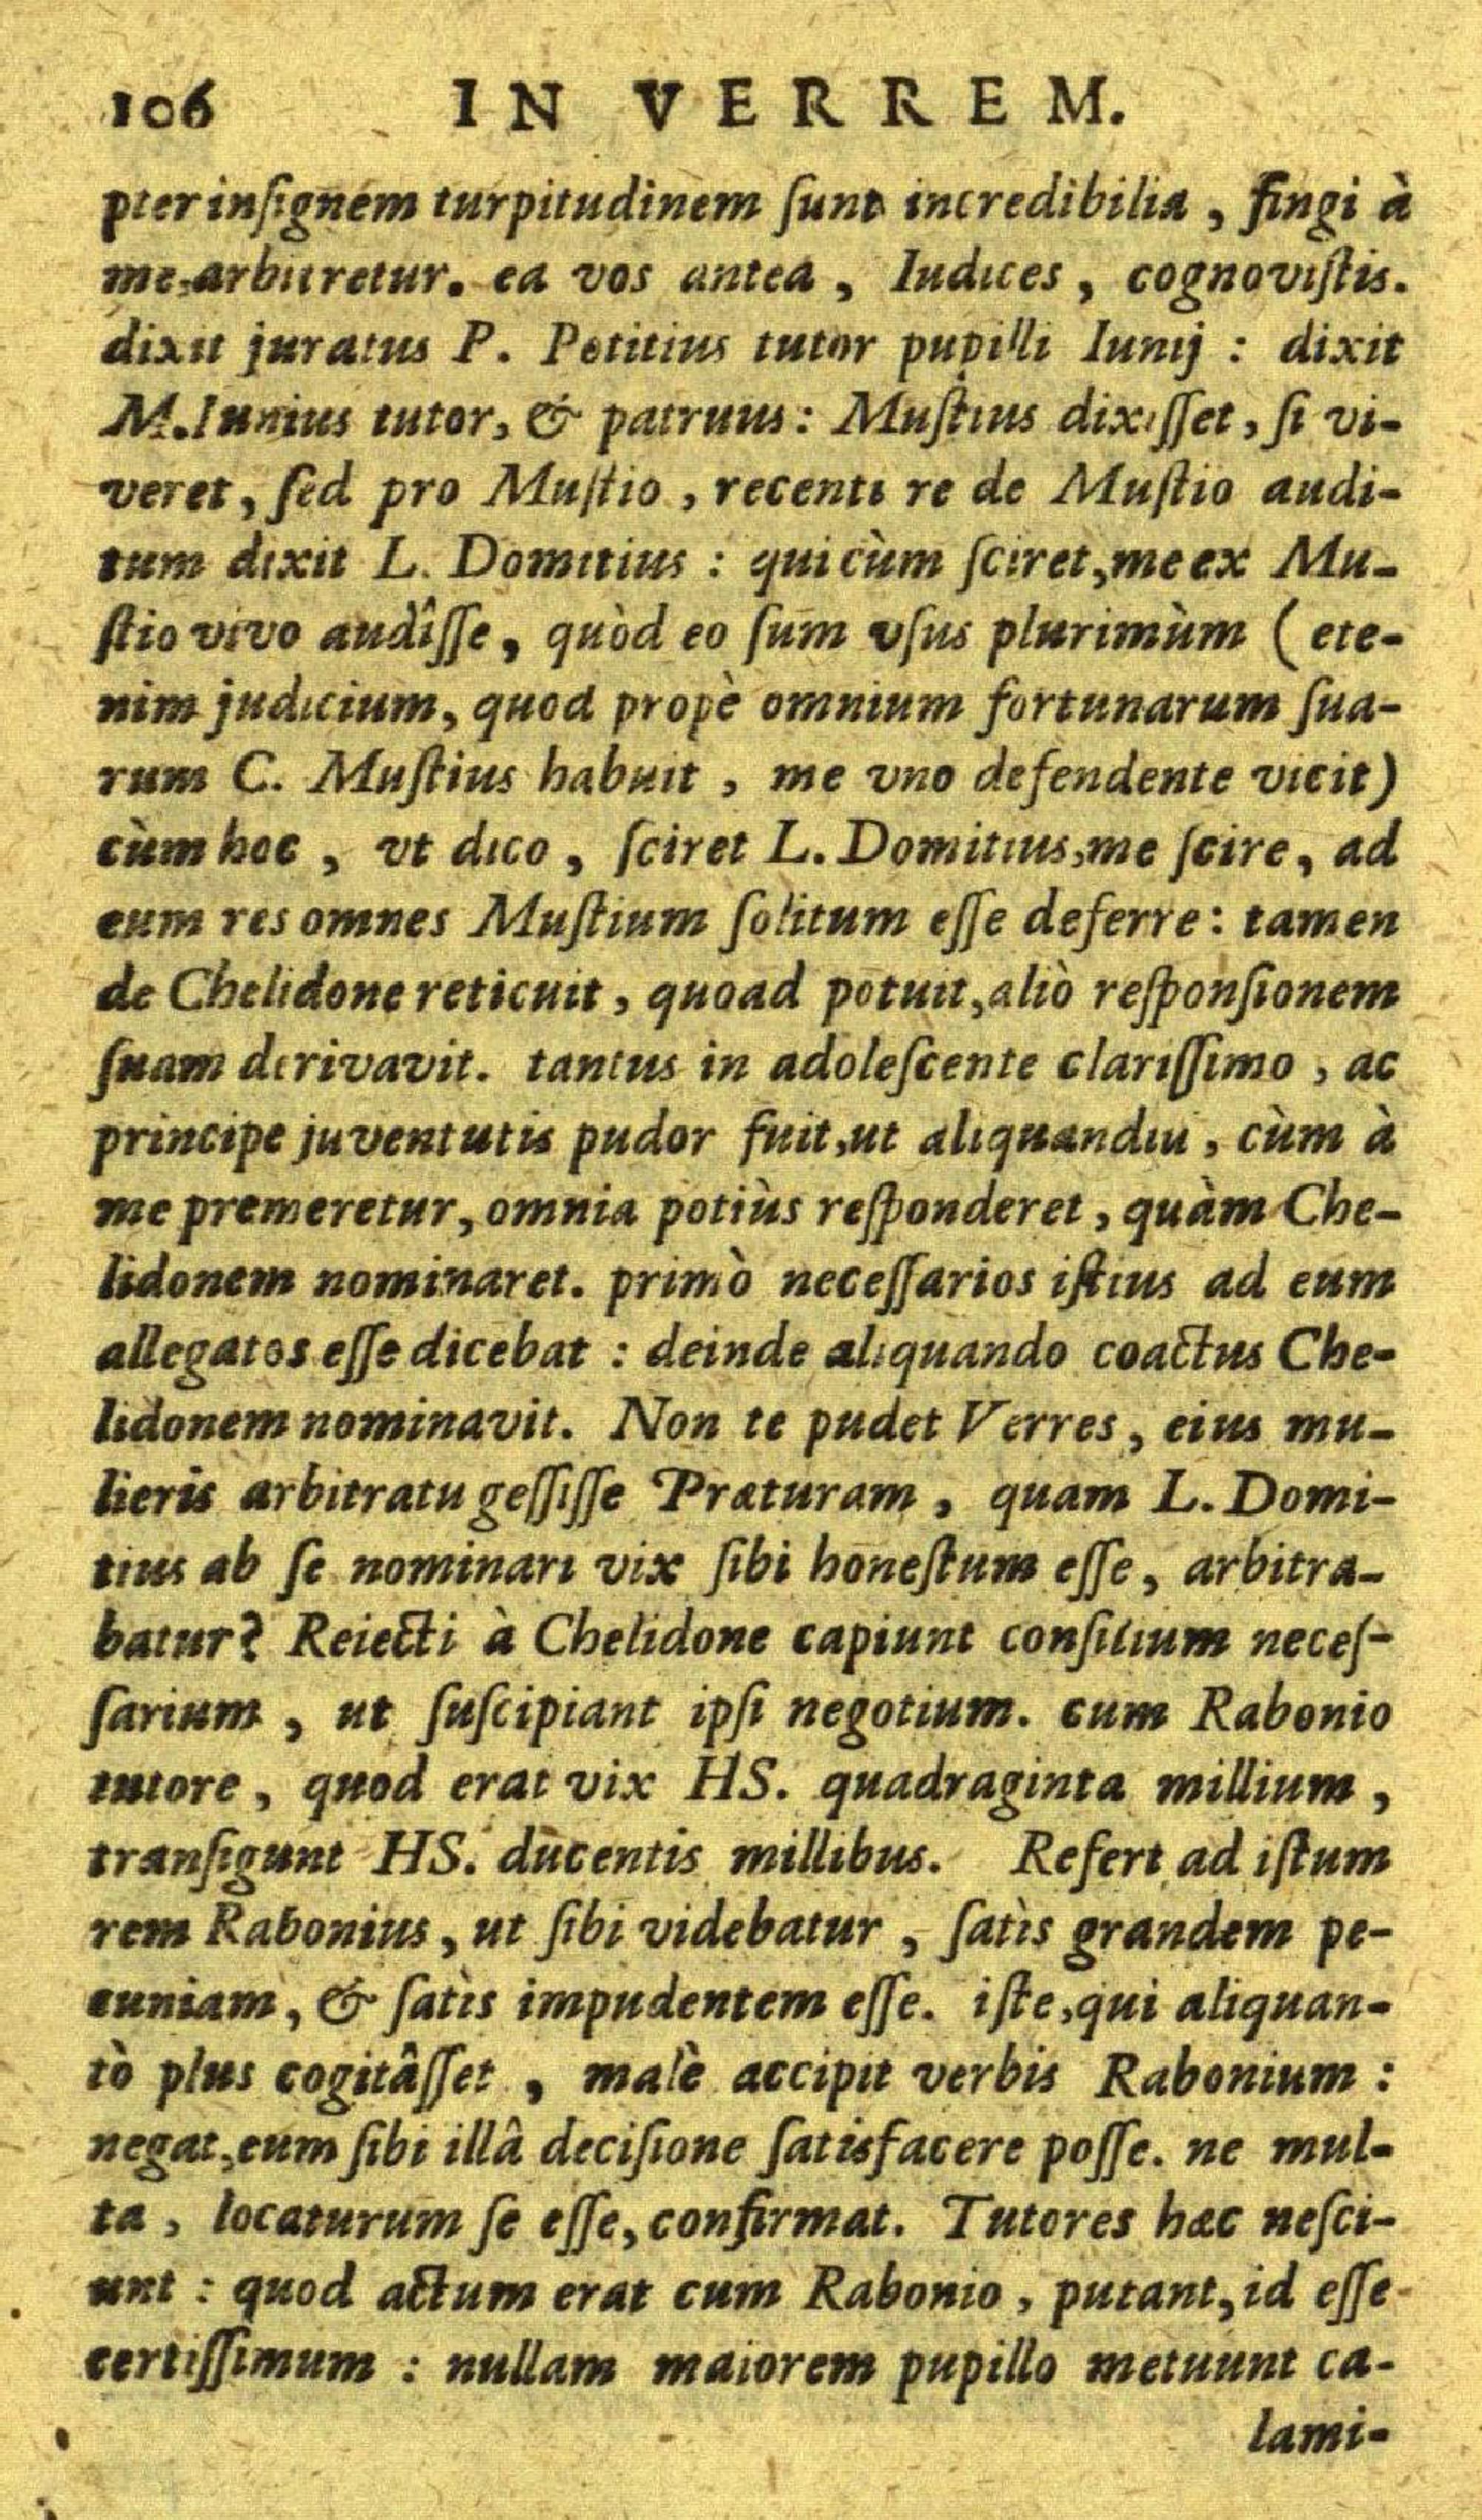 106 IN VERREM.
pter inſignem turpitudinem ſunt incredibilia, fingi à
me, arbitretur. ea vos antea, Iudices, cognoviſtis.
dixit juratus P. Potitius tutor pupilli Iunij : dixit
M. Iunius tutor, & patruus : Muſtius dixiſſet, ſi vi-
veret, ſed pro Muſtio, recenti re de Muſtio audi-
tum dixit L. Domitius : qui cùm ſciret, me ex Mu-
ſtio vivo audîſſe, quòd eo ſum vſus plurimùm (ete-
nim judicium, quod propè omnium fortunarum ſua-
rum C. Muſtius habuit, me vno defendente vicit)
cùm hoc, vt dico, ſciret L. Domitius, me ſcire, ad
eum res omnes Muſtium ſolitum eſſe deferre : tamen
de Chelidone reticuit, quoad potuit, aliò reſponſionem
ſuam derivavit. tantus in adoleſcente clariſſimo, ac
principe juventutis pudor fuit, ut aliquandiu, cùm à
me premeretur, omnia potiùs reſponderet, quàm Che-
lidonem nominaret. primò neceſſarios iſtius ad eum
allegatos eſſe dicebat : deinde aliquando coactus Che-
lidonem nominavit. Non te pudet Verres, eius mu-
lieris arbitratu geſſiſſe Præturam, quam L. Domi-
tius ab ſe nominari vix ſibi honeſtum eſſe, arbitra-
batur? Reiecti à Chelidone capiunt conſilium neceſ-
ſarium, ut ſuſcipiant ipſi negotium. cum Rabonio
tutore, quod erat vix HS. quadraginta millium,
tranſigunt HS. ducentis millibus. Refert ad iſtum
rem Rabonius, ut ſibi videbatur, ſatìs grandem pe-
cuniam, & ſatìs impudentem eſſe. iſte, qui aliquan-
tò plus cogitâſſet, malè accipit verbis Rabonium :
negat, eum ſibi illâ deciſione ſatisfacere poſſe. ne mul-
ta, locaturum ſe eſſe, confirmat. Tutores hæc neſci-
unt : quod actum erat cum Rabonio, putant, id eſſe
certiſſimum : nullam maiorem pupillo metuunt ca-
lami-